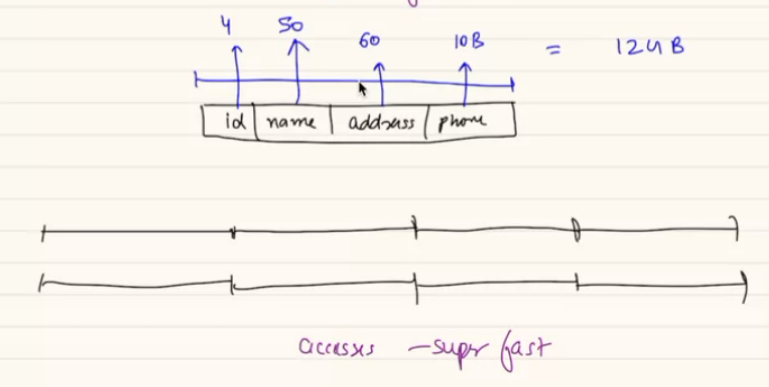 4 50 60 10B = 124B
id name address phone
accesses - super fast